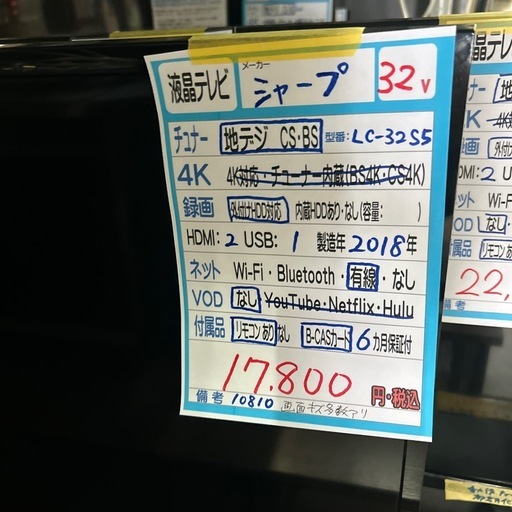 液晶テレビ メーカー シャープ 32v
チュナー 地デジ CS・BS 型番: LC-32S5
4K 4K対応・チューナー内蔵(BS4K・CS4K)
録画 外付けHDD対応 内蔵HDDあり・なし(容量: )
HDMI: 2 USB: 1 製造年 2018年
ネット Wi-Fi・Bluetooth・有線・なし
VOD なし・YouTube・Netflix・Hulu
付属品 リモコンあり なし B-CASカード 6カ月保証付
17.800 円・税込
備考 10810 画面キズ多数アリ
液晶テレ
チュナー
4K
録画 外付け
HDMI: 2
ネット Wi-F
VOD なし
付属品 リモコンあり
22,
備考